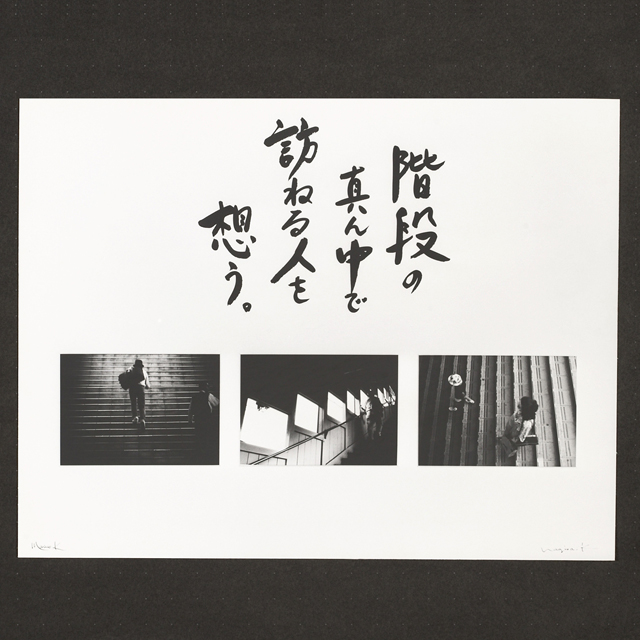 階段の
真ん中で
訪ねる人を
想う。